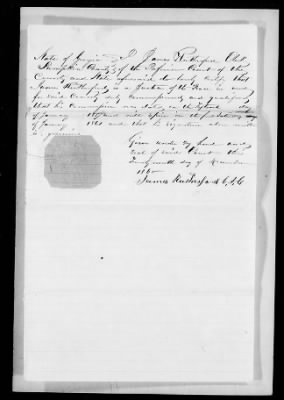 State of Georgia } I, James Rutherford Clerk
County } of the Superior Court of the
County and State aforesaid do hereby certify that
James Rutherford is a Justice of the Peace in and
for said County duly commissioned and qualified
that his commission was dated on the day
of January and will expire on the day
of January and that his signature above written
is genuine
Given under my hand and
seal of said Court this
day of
1865
James Rutherford C.S.C